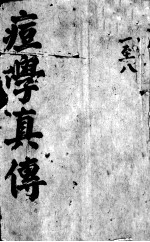 痘學真傳
一至八